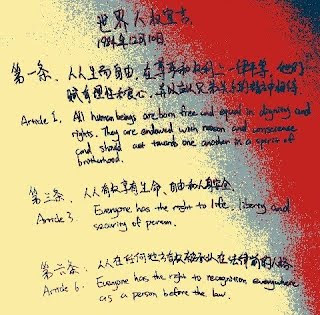 世界人权宣言
1948年12月10日
第一条、人人生而自由，在尊严和权利上一律平等，他们
赋有理性和良心，并以兄弟关系的精神相待
Article 1. All human beings are born free and equal in dignity and
rights. They are endowed with reason and conscience
and should act towards one another in a spirit of
brotherhood.
第三条、人人有权享有生命、自由和人身安全
Article 3. Everyone has the right to life, liberty and
security of person.
第六条、人人在任何地方有权被承认在法律前的人格
Article 6. Everyone has the right to recognition everywhere
as a person before the law.